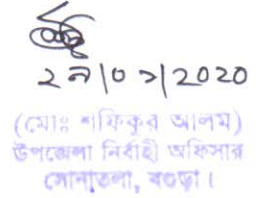 ২৯|০১|2020
(মোঃ শফিকুর আলম)
উপজেলা নির্বাহী অফিসার
সোনাতলা, বগুড়া।